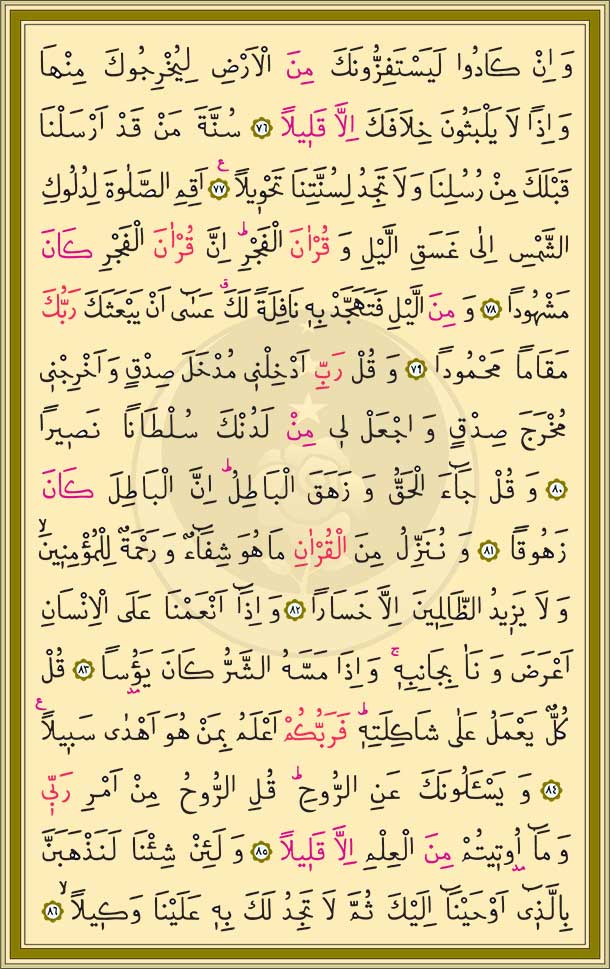 وَ اِنْ كَادُوا لَيَسْتَفِزُّونَكَ مِنَ الْاَرْضِ لِيُخْرِجُوكَ مِنْهَا
وَ اِذًا لَا يَلْبَثُونَ خِلَافَكَ اِلَّا قَل۪يلاً ﴿٧٦﴾ سُنَّةَ مَنْ قَدْ اَرْسَلْنَا
قَبْلَكَ مِنْ رُسُلِنَا وَلَا تَجِدُ لِسُنَّتِنَا تَحْو۪يلاً ۟ ﴿٧٧﴾ اَقِمِ الصَّلٰوةَ لِدُلُوكِ
الشَّمْسِ اِلٰى غَسَقِ الَّيْلِ وَ قُرْاٰنَ الْفَجْرِۜ اِنَّ قُرْاٰنَ الْفَجْرِ كَانَ
مَشْهُودًا ﴿٧٨﴾ وَ مِنَ الَّيْلِ فَتَهَجَّدْ بِه۪ نَافِلَةً لَكَۗ عَسٰٓى اَنْ يَبْعَثَكَ رَبُّكَ
مَقَامًا مَحْمُودًا ﴿٧٩﴾ وَ قُلْ رَبِّ اَدْخِلْن۪ي مُدْخَلَ صِدْقٍ وَ اَخْرِجْن۪ي
مُخْرَجَ صِدْقٍ وَ اجْعَلْ ل۪ي مِنْ لَدُنْكَ سُلْطَانًا نَص۪يرًا
﴿٨٠﴾ وَ قُلْ جَٓاءَ الْحَقُّ وَ زَهَقَ الْبَاطِلُۜ اِنَّ الْبَاطِلَ كَانَ
زَهُوقًا ﴿٨١﴾ وَ نُنَزِّلُ مِنَ الْقُرْاٰنِ مَا هُوَ شِفَٓاءٌ وَ رَحْمَةٌ لِلْمُؤْمِن۪ينَۙ
وَ لَا يَز۪يدُ الظَّالِم۪ينَ اِلَّا خَسَارًا ﴿٨٢﴾ وَ اِذَٓا اَنْعَمْنَا عَلَى الْاِنْسَانِ
اَعْرَضَ وَ نَاٰ بِجَانِبِه۪ۚ وَ اِذَا مَسَّهُ الشَّرُّ كَانَ يَؤُسًا ﴿٨٣﴾ قُلْ
كُلٌّ يَعْمَلُ عَلٰى شَاكِلَتِه۪ۜ فَرَبُّكُمْ اَعْلَمُ بِمَنْ هُوَ اَهْدٰى سَب۪يلاً ۟
﴿٨٤﴾ وَ يَسْـَٔلُونَكَ عَنِ الرُّوحِۜ قُلِ الرُّوحُ مِنْ اَمْرِ رَبّ۪ي
وَ مَٓا اُو۫ت۪يتُمْ مِنَ الْعِلْمِ اِلَّا قَل۪يلاً ﴿٨٥﴾ وَ لَئِنْ شِئْنَا لَنَذْهَبَنَّ
بِالَّذ۪ٓي اَوْحَيْنَٓا اِلَيْكَ ثُمَّ لَا تَجِدُ لَكَ بِه۪ عَلَيْنَا وَك۪يلاًۙ ﴿٨٦﴾